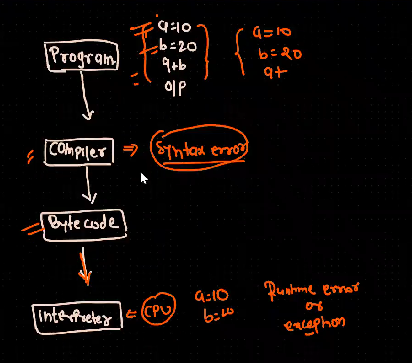 a=10
b=20
a+b
o/p
a=10
b=20
a+
Program
Compiler
Syntax error
Bytecode
Interpreter
CPU
a=10
b=20
Runtime error
or
exception